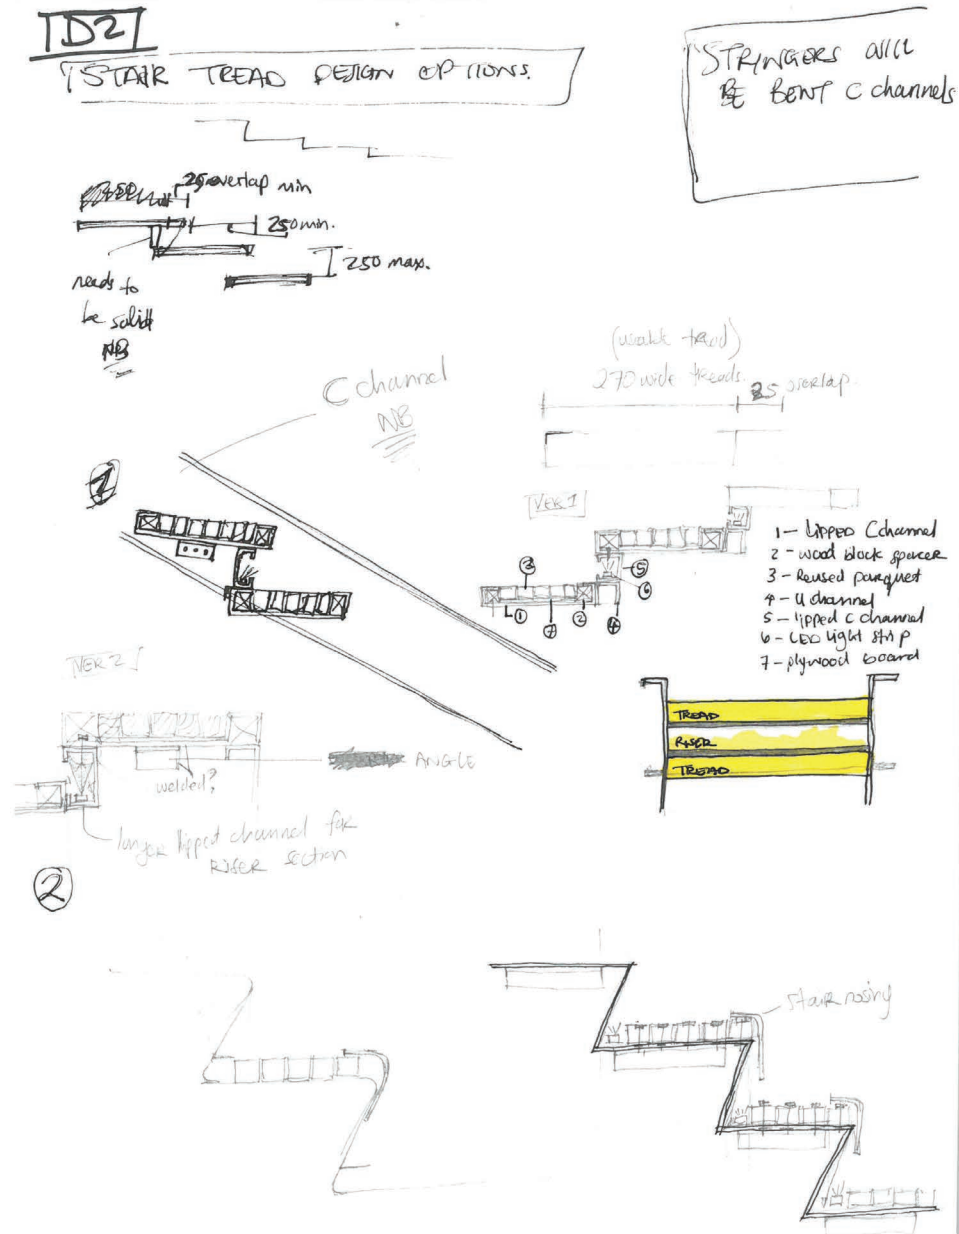 D2
STAIR TREAD DESIGN OPTIONS.
STRINGERS WILL
BE BENT C channels
25 overlap min
250 min.
250 max.
needs to
be solid
NB
(walk tread)
270 wide treads.
25 overlap.
C channel
NB
1
VER 1
1 - LIPPED C channel
2 - wood block spacer
3 - Reused parquet
4 - U channel
5 - lipped C channel
6 - LED light strip
7 - plywood board
3
5
6
1
7
2
4
VER 2
TREAD
RISER
TREAD
ANGLE
welded?
longer lipped channel for
RISER section
2
Stair nosing